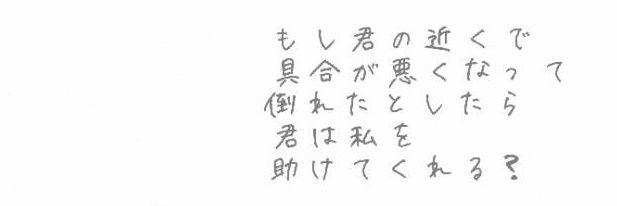 もし君の近くで
具合が悪くなって
倒れたとしたら
君は私を
助けてくれる?